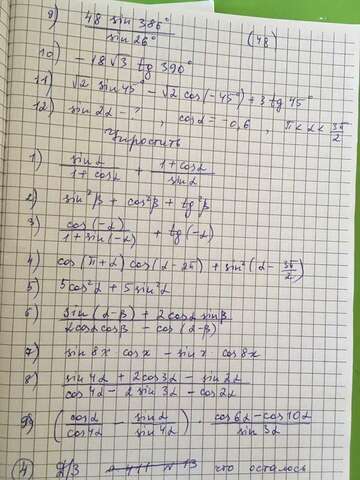 9) 48 sin 386° / sin 26° (48)
10) -18√3 tg 390°
11) √2 sin 45° - √2 cos(-45°) + 3 tg 45°
12) sin 2α - ? , cos α = -0,6 , π < α < 3π/2
Упростить
1) sin α / 1 + cos α + 1 + cos α / sin α
2) sin²β + cos²β + tg²β
3) cos(-α) / 1 + sin(-α) + tg(-α)
4) cos(π+α) cos(α-2π) + sin²(α - 3π/2)
5) 5cos²α + 5sin²α
6) sin(α-β) + 2cosα sinβ / 2cosα cosβ - cos(α-β)
7) sin 8x · cos x - sin x · cos 8x
8) sin 4α + 2cos 3α - sin 2α / cos 4α - 2 sin 3α - cos 2α
9) (cos α / cos 4α - sin α / sin 4α) · cos 6α - cos 10α / sin 3α
4 Д/З что осталось